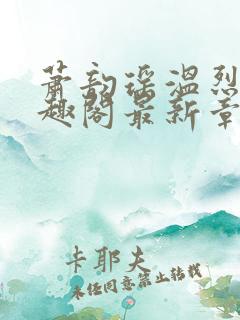 萧韵瑶温烈
趣阁最新章
卡耶夫
未经同意禁止转载